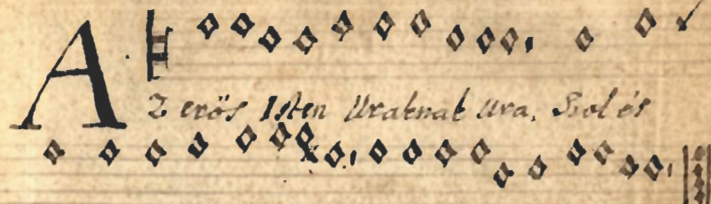 AZ erös Isten Uraknak Ura, Szol és